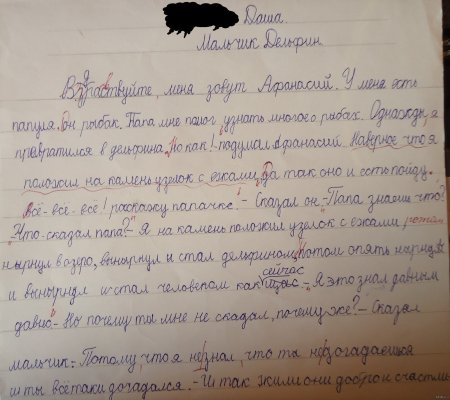 Даша.
Мальчик Дельфин.
Здраствуйте, меня зовут Афанасий. У меня есть
папуля. Он рыбак. Папа мне помог узнать много о рыбах. Однажды, я
превратился в дельфина. Но как! - подумал Афанасий. Наверное что я
положил на камень узелок с ежами. Да так оно и есть пойду
всё-всё-всё! расскажу папачке. - Сказал он - Папа знаеш что?
"Что - сказал папа?" - Я на камень положил узелок с ежами потом
нырнул в озро, вынырнул и стал дельфином. Потом опять нырнул
сейчас
и вынырнул и стал человеком как щас - Я это знал давным
давно. - Но почему ты мне не скадал, почему же? - Сказал
мальчик. - Потому, что я незнал, что ты недогадаешся
и ты всётаки догадался. - И так жили они добро и счастли